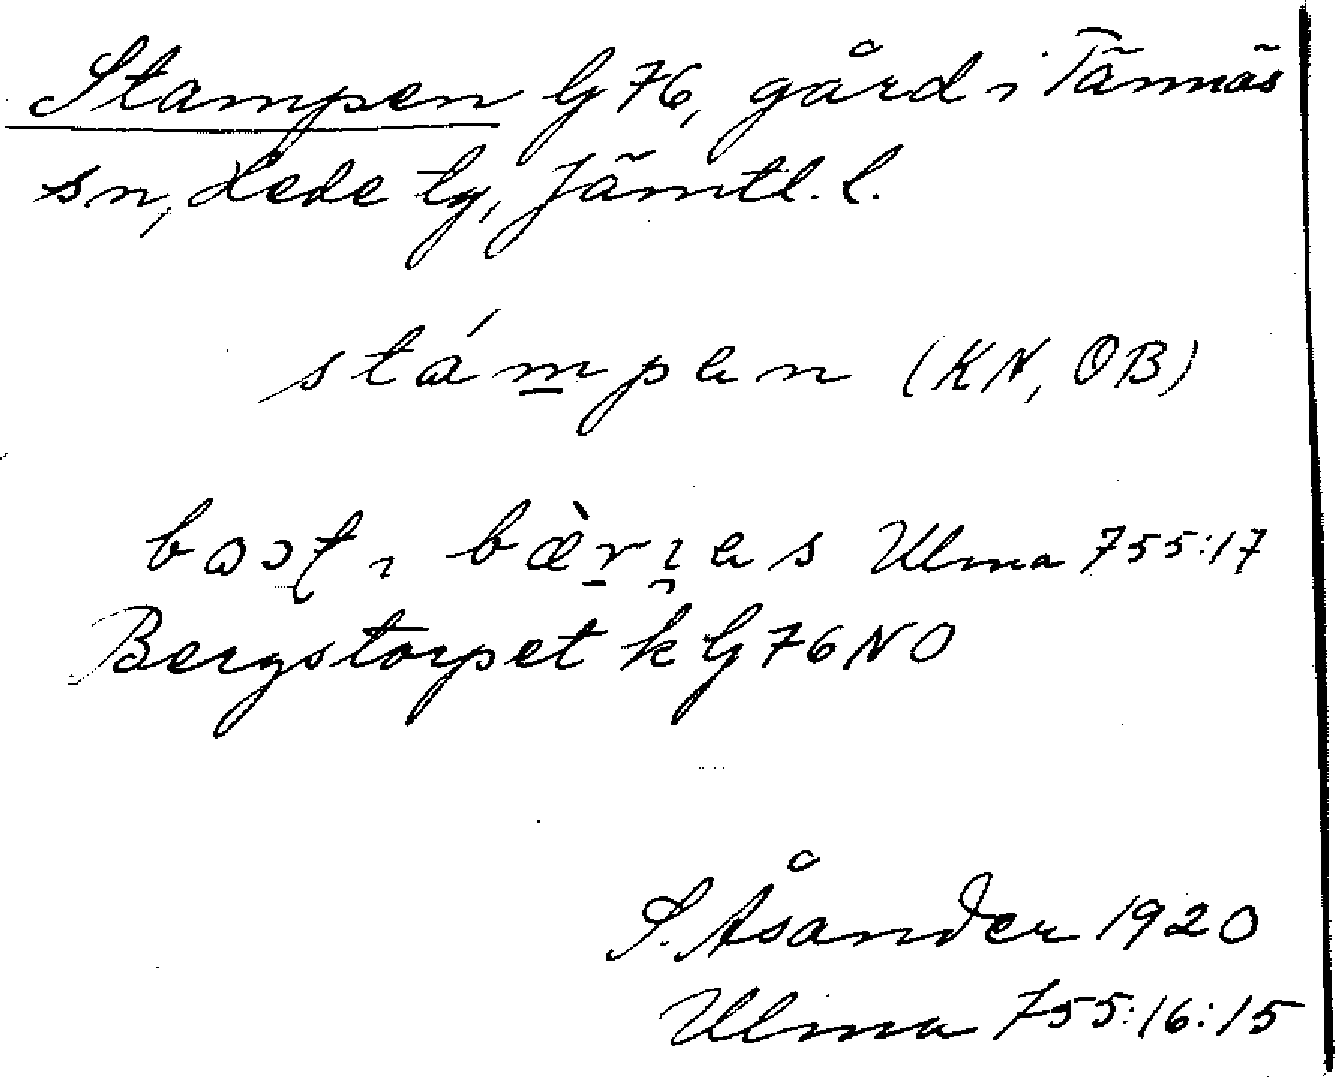 Stampen G 76, gård i Tännäs
sn, Hede tg, Jämtl. l.
stámpen (KN, OB)
bæ̀rıes Ulma 755:17
Bergstorpet k G 76 NO
S. Åsander 1920
Ulma 755:16:15